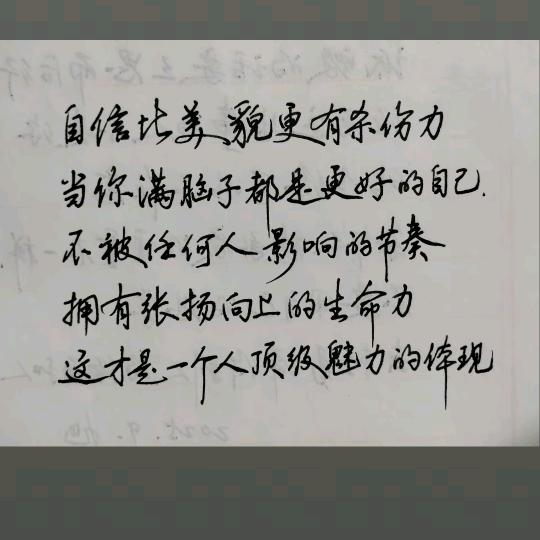 自信比美貌更有杀伤力
当你满脑子都是更好的自己.
不被任何人影响的节奏
拥有张扬向上的生命力
这才是一个人顶级魅力的体现